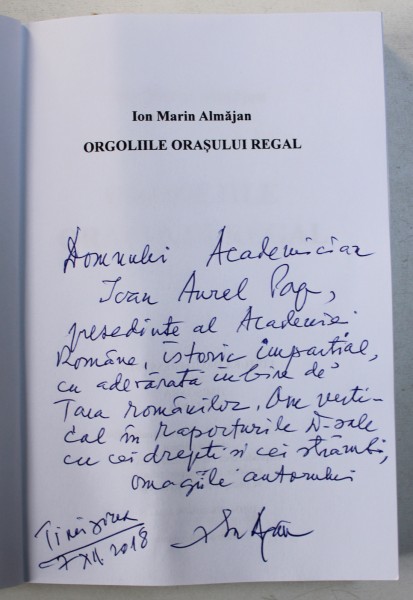 Ion Marin Almăjan
ORGOLIILE ORAȘULUI REGAL
Domnului Academician
Ioan Aurel Pop,
președinte al Academiei
Române, istoric imparțial,
cu adevărata iubire de
Țara românilor. Om verti-
cal în raporturile D-sale
cu cei drepți și cei strâmbi,
omagiile autorului
Timișoara
7 XII. 2018